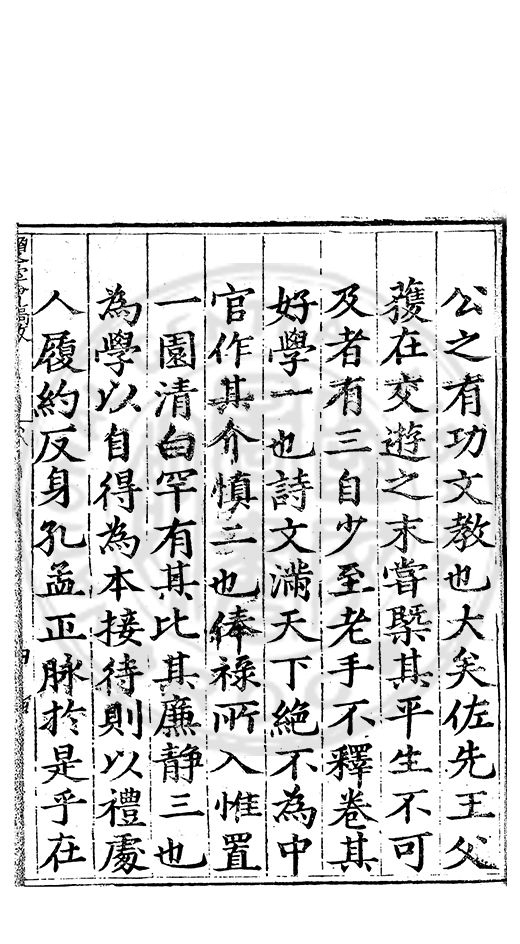 公之有功文教也大矣佐先王父
獲在交遊之末嘗槩其平生不可
及者有三自少至老手不釋卷其
好學一也詩文滿天下絕不為中
官作其介慎二也俸祿所入惟置
一園清白罕有其比其廉靜三也
為學以自得為本接待則以禮處
人履約反身孔孟正脉扵是乎在